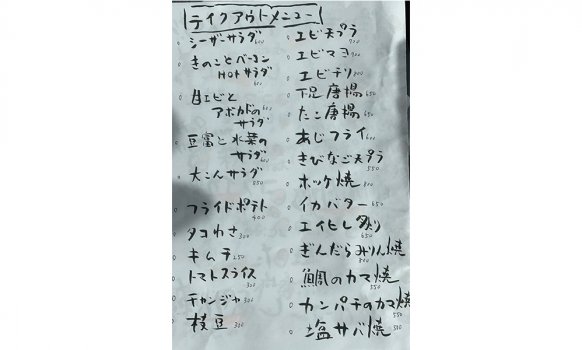 テイクアウトメニュー
シーザーサラダ 600
きのことベーコン
HOTサラダ
600
甘エビと
アボカドの 600
サラダ
豆富と水菜の
サラダ
600
大こんサラダ
550
フライドポテト
400
タコわさ 300
キムチ 250
トマトスライス
300
チャンジャ 300
枝豆 300
エビ天プラ
900
エビマヨ 900
エビチリ 900
下足唐揚 650
たこ唐揚 650
あじフライ 600
きびなご天プラ
550
ホッケ焼 800
イカバター 650
エイヒレ炙り
650
ぎんだらみりん焼
800
鯛のカマ焼
550
カンパチのカマ焼
550
塩サバ焼 500